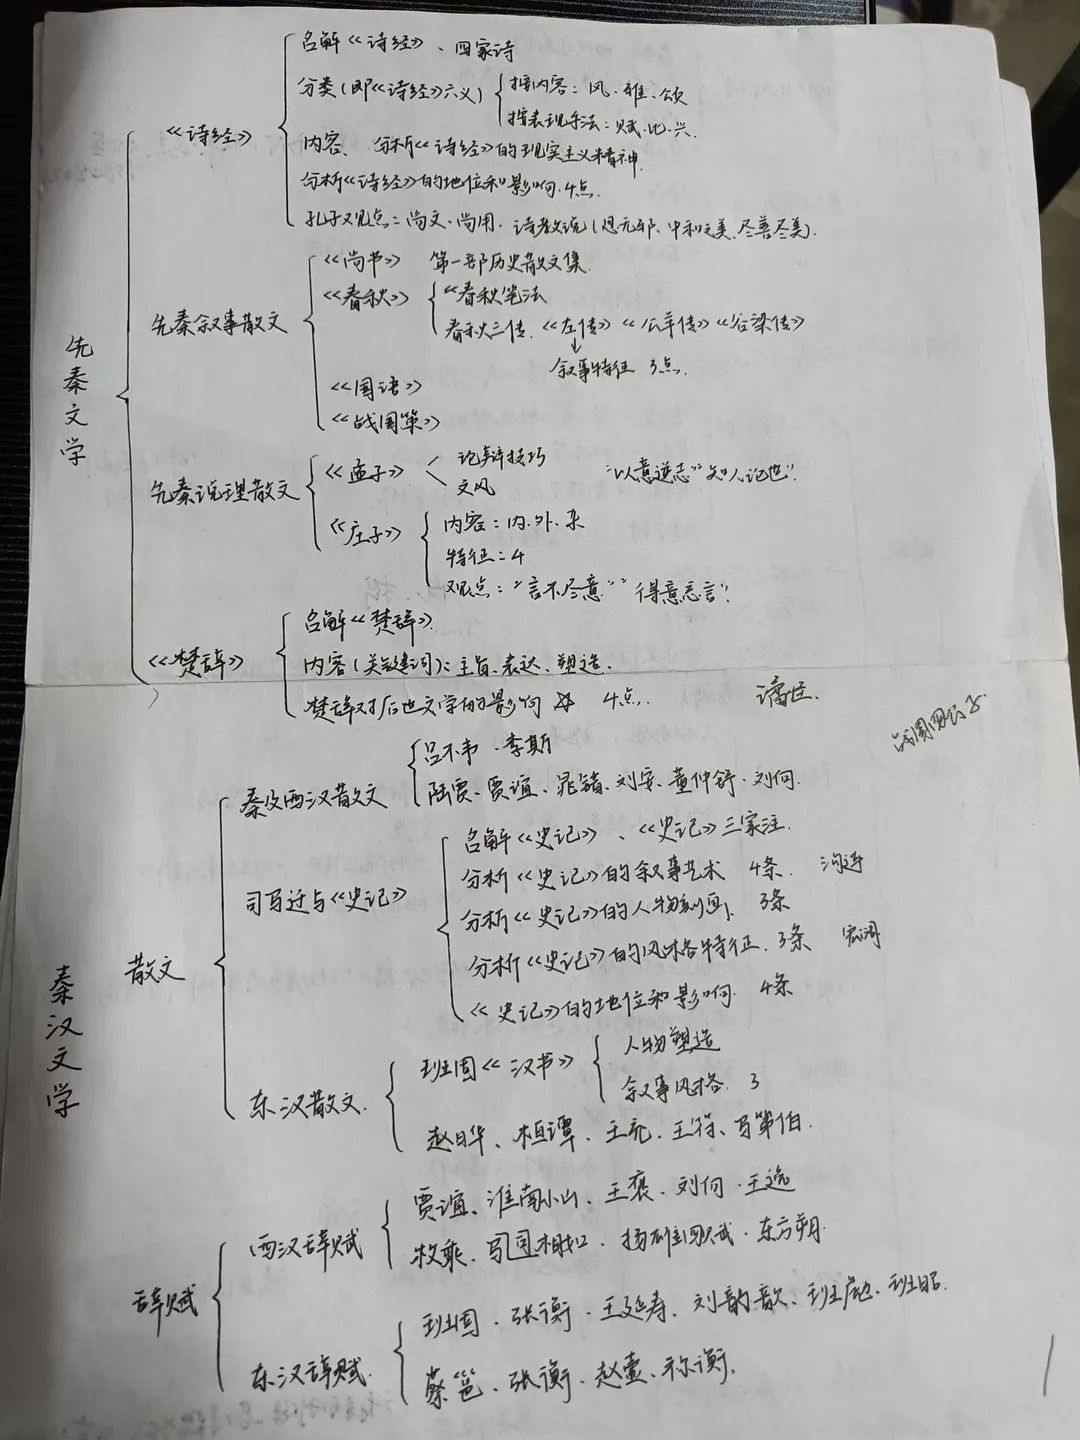 先秦文学
《诗经》
名解《诗经》、四家诗
分类(即《诗经》六义)
按内容:风、雅、颂
按表现手法:赋、比、兴.
内容、分析《诗经》的现实主义精神.
分析《诗经》的地位和影响.4点.
孔子观点:尚文、尚用.诗教说(思无邪、中和之美、尽善尽美).
先秦叙事散文
《尚书》 第一部历史散文集.
《春秋》
《春秋笔法
春秋三传.《左传》《公羊传》《谷梁传》
叙事特征 3点.
《国语》
《战国策》
先秦说理散文
《孟子》
论辩技巧
文风
“以意逆志”“知人论世”
《庄子》
内容:内、外、杂
特征:4
观点:“言不尽意”“得意忘言”
《楚辞》
名解《楚辞》.
内容(关键词):主旨、表达、塑造.
楚辞对后世文学的影响 ☆ 4点.
战国四公子.
秦汉文学
散文
秦及西汉散文
吕不韦、李斯
陆贾、贾谊、晁错、刘安、董仲舒、刘向.
司马迁与《史记》
名解《史记》、《史记》三家注.
分析《史记》的叙事艺术 4条.
分析《史记》的人物刻画 3条
分析《史记》的风格特征.3条 宏阔
《史记》的地位和影响.4条
东汉散文.
班固《汉书》
人物塑造
叙事风格.3
赵晔、桓谭、王充、王符、马第伯.
辞赋
西汉辞赋
贾谊、淮南小山、王褒、刘向、王逸
枚乘、马司相如、扬雄四赋、东方朔.
东汉辞赋.
班固、张衡、王延寿、刘歆、班彪、班昭.
蔡邕、张衡、赵壹、祢衡.